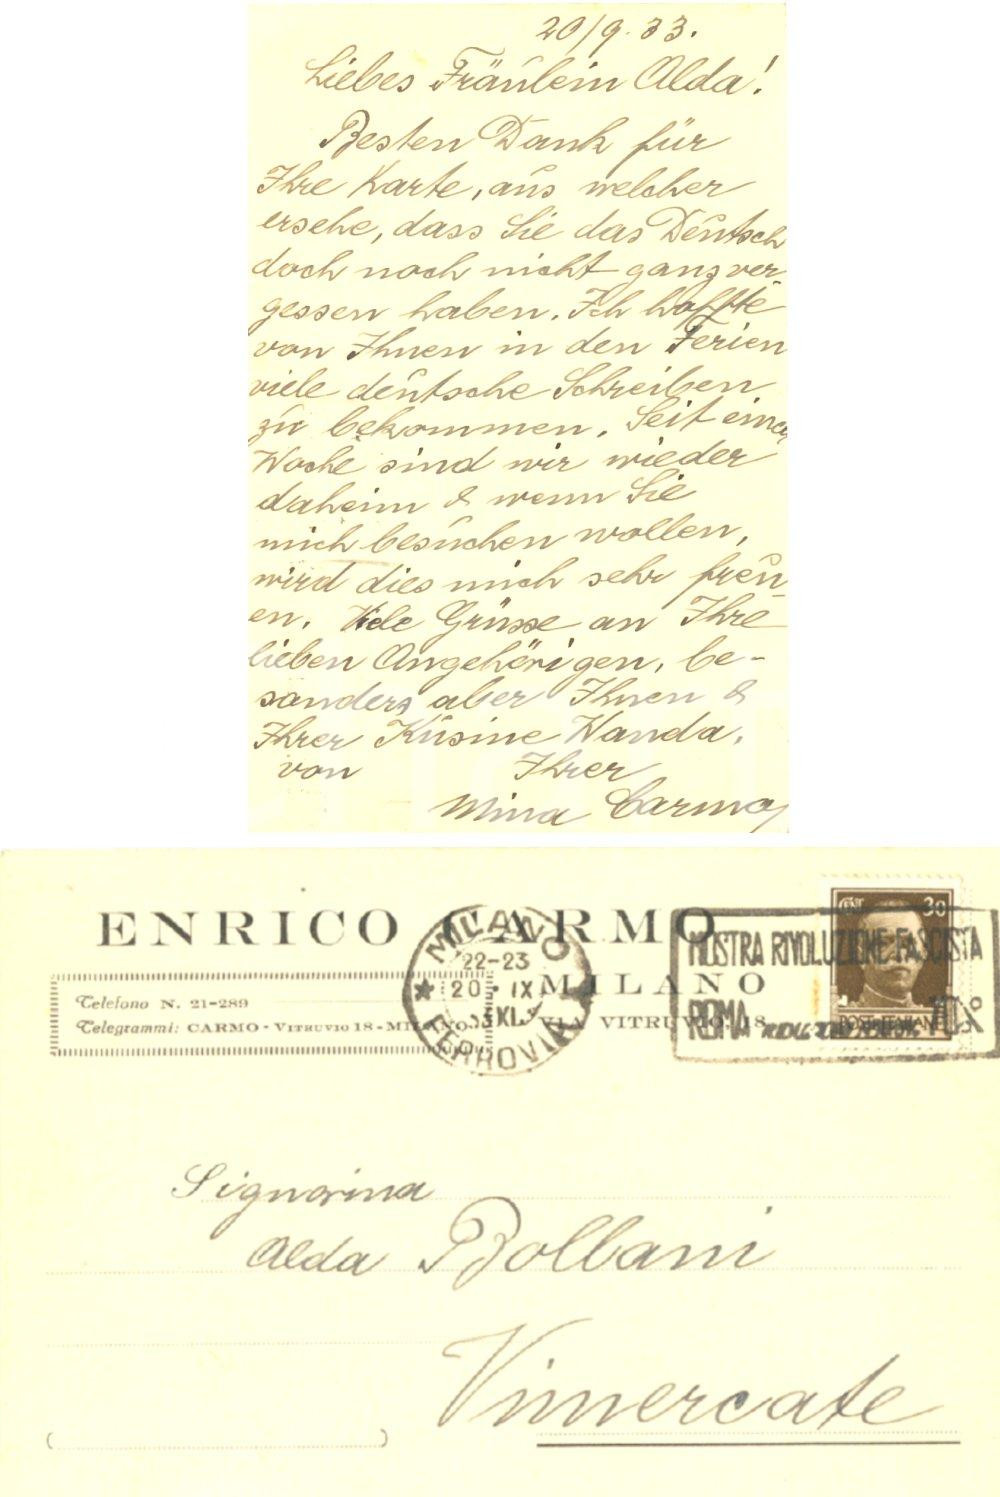 20/9.33.
Liebes Fräulein Alda!
Besten Dank für
Ihre Karte, aus welcher
ersehe, dass Sie das Deutsch
doch noch nicht ganz ver-
gessen haben. Ich hoffte
von Ihnen in den Ferien
viele deutsche Schreiben
zu bekommen. Seit einer
Woche sind wir wieder
daheim & wenn Sie
mich besuchen wollen,
wird dies mich sehr freu-
en. Viele Grüsse an Ihre
lieben Angehörigen, be-
sonders aber Ihnen &
Ihrer Kusine Wanda.
von Ihrer
Mina Carmo
ENRICO CARMO
MILANO
VIA VITRUVIO 18
Telefono N. 21-289
Telegrammi: CARMO - VITRUVIO 18 - MILANO
MILANO
22-23
20 · IX
33 XI
FERROVIA
30
MOSTRA RIVOLUZIONE FASCISTA
ROMA
POSTE ITALIANE
Signorina
Alda Bollani
Vimercate